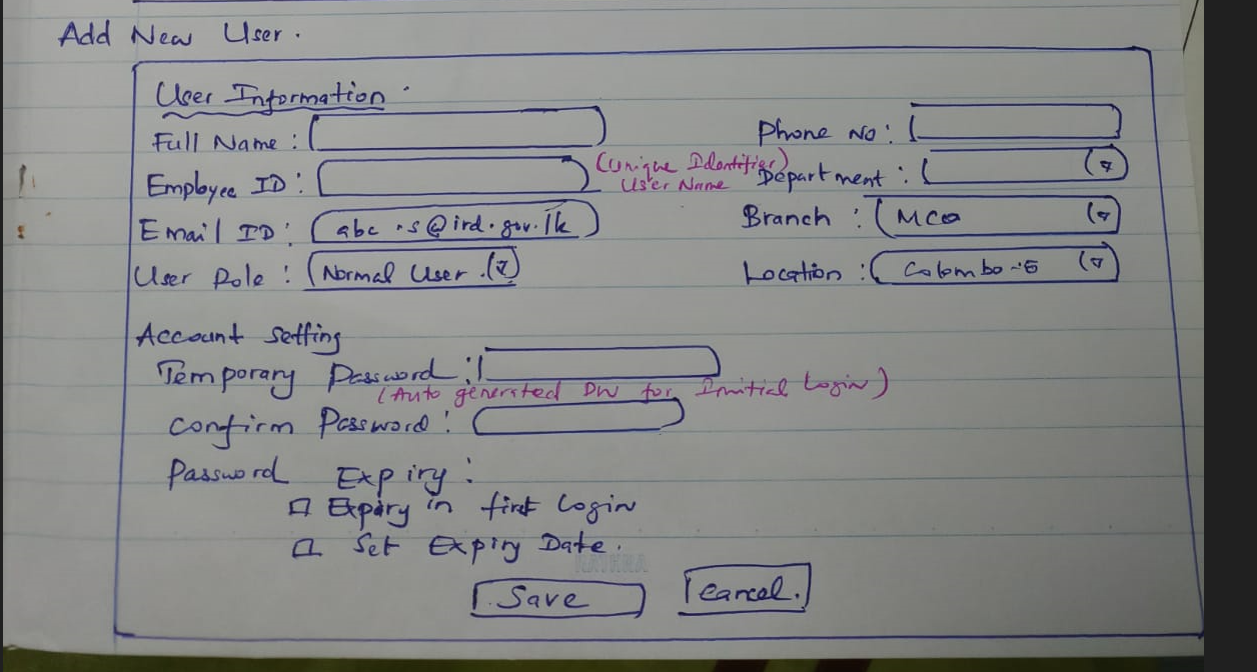 Add New User.
User Information
Full Name :
Phone No :
Employee ID : (Unique Identifier) User Name
Department :
Email ID : abc.s@ird.gov.lk
Branch : MCO
User Role : Normal User
Location : Colombo
Account Setting
Temporary Password :
(Auto generated for Initial Login)
Confirm Password :
Password Expiry :
Expiry in first Login
Set Expiry Date.
Save Cancel.